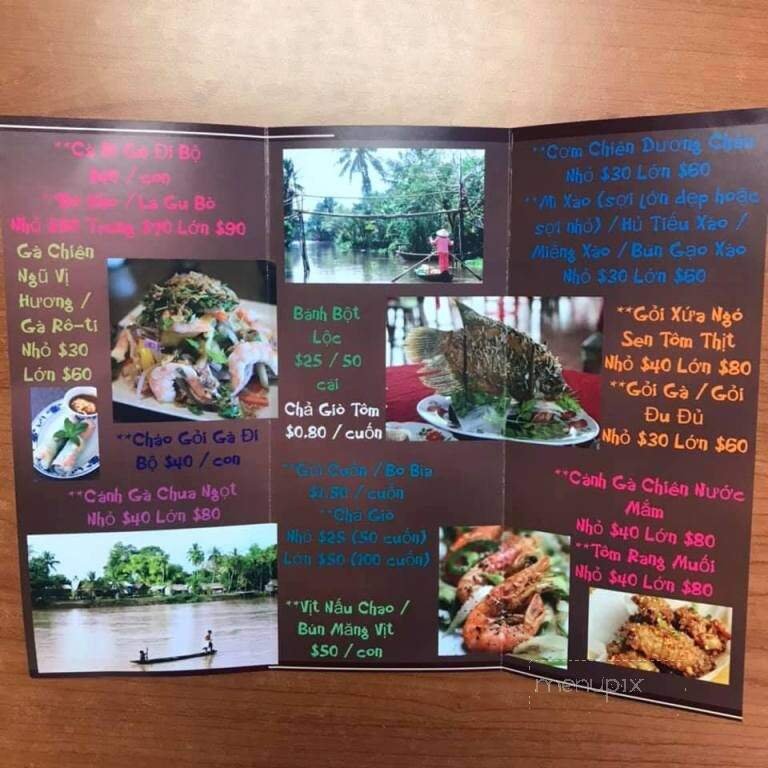 **Cà Ri Gà Đi Bộ
/ con
**Bò Kho / La Gu Bò
Nhỏ Trung $70 Lớn $90
Gà Chiên
Ngũ Vị
Hương /
Gà Rô-ti
Nhỏ $30
Lớn $60
**Cháo Gỏi Gà Đi
Bộ $40 / con
**Cánh Gà Chua Ngọt
Nhỏ $40 Lớn $80
Bánh Bột
Lộc
$25 / 50
cái
Chả Giò Tôm
$0.80 / cuốn
**Gỏi Cuốn / Bò Bía
$1.50 / cuốn
**Chả Giò
Nhỏ $25 (50 cuốn)
Lớn $50 (100 cuốn)
**Vịt Nấu Chao /
Bún Măng Vịt
$50 / con
**Cơm Chiên Dương Châu
Nhỏ $30 Lớn $60
**Mì Xào (sợi lớn dẹp hoặc
sợi nhỏ) / Hủ Tiếu Xào /
Miếng Xào / Bún Gạo Xào
Nhỏ $30 Lớn $60
**Gỏi Xứa Ngó
Sen Tôm Thịt
Nhỏ $40 Lớn $80
**Gỏi Gà / Gỏi
Đu Đủ
Nhỏ $30 Lớn $60
**Cánh Gà Chiên Nước
Mắm
Nhỏ $40 Lớn $80
**Tôm Rang Muối
Nhỏ $40 Lớn $80
menupix